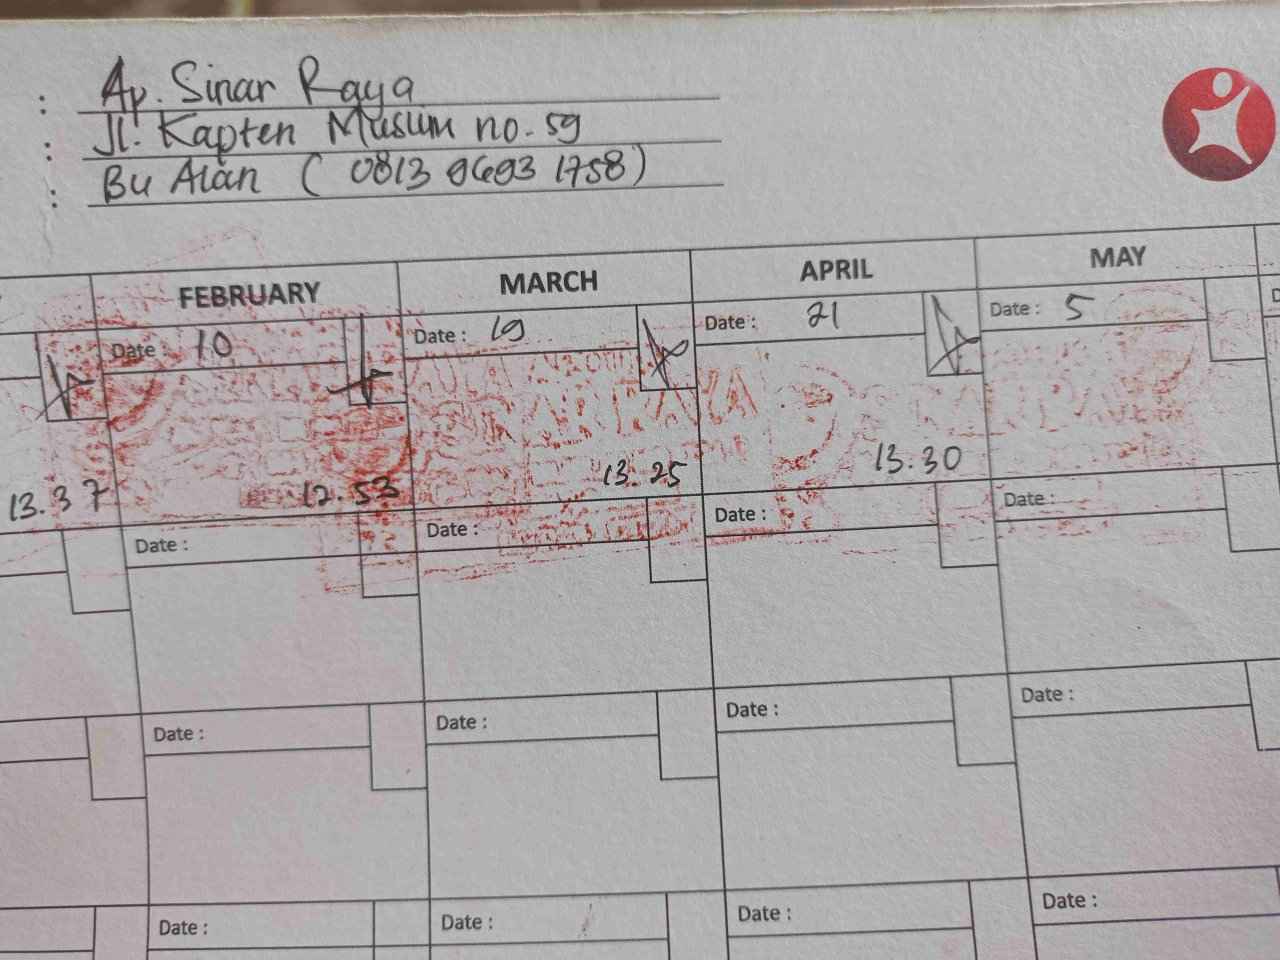 : Ap. Sinar Raya
: Jl. Kapten Muslim no. 59
: Bu Alan ( 0813 9693 1758 )
FEBRUARY MARCH APRIL MAY
Date : 10 Date : 19 Date : 21 Date : 5
RAYA
13.37 12.53 13.25 13.30
Date : Date : Date : Date :
Date : Date : Date : Date :
Date : Date : Date : Date :